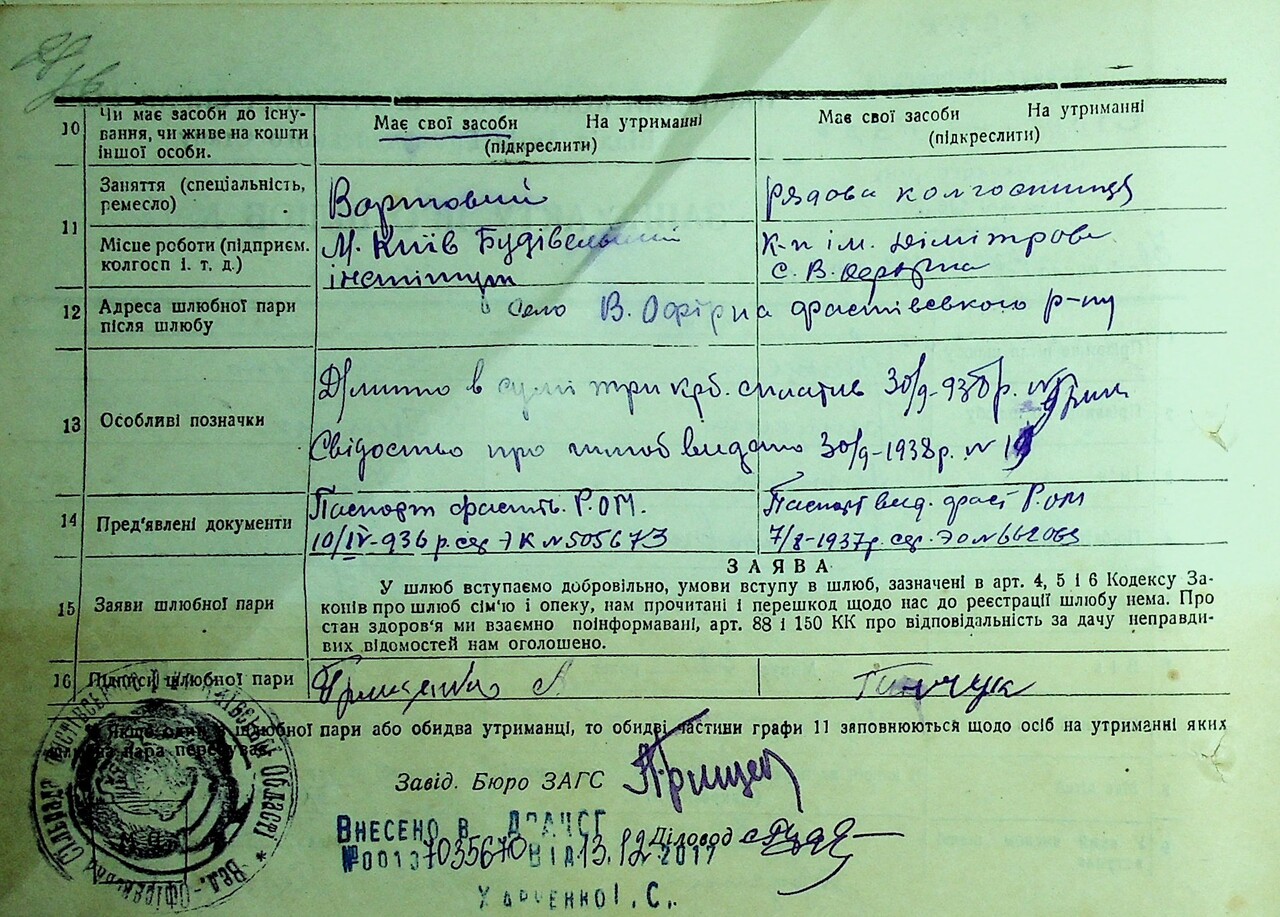 10 Чи має засоби до існу-
вання, чи живе на кошти
іншої особи.
Має свої засоби На утриманні
(підкреслити)
Має свої засоби На утриманні
(підкреслити)
11 Заняття (спеціальність,
ремесло)
Вартовий
рядова колгоспниця
Місце роботи (підприєм.
колгосп і. т. д.)
М. Київ Будівельний
інститут
К-п ім. Дімітрова
с. В. Офірна
12 Адреса шлюбної пари
після шлюбу
Село В. Офірна фастівського р-ну
13 Особливі позначки
в сумі три крб. сплатив 30/9-938р.
Свідоство про шлюб видано 30/9-1938р. №
14 Пред'явлені документи
Паспорт фастів. Р.О.М.
10/IV-936 р. сер. ЭК №505673
Паспорт вид. фаст Р.ОМ
7/8-1937р. сер. №662063
15 Заяви шлюбної пари
ЗАЯВА
У шлюб вступаємо добровільно, умови вступу в шлюб, зазначені в арт. 4, 5 і 6 Кодексу За-
конів про шлюб сім'ю і опеку, нам прочитані і перешкод щодо нас до реєстрації шлюбу нема. Про
стан здоров'я ми взаємно поінформавані, арт. 88 і 150 КК про відповідальність за дачу неправди-
вих відомостей нам оголошено.
16 Підписи шлюбної пари
Грищенко А
Якщо один з шлюбної пари або обидва утриманці, то обидві частини графи 11 заповнюються щодо осіб на утриманні яких
шлюбна пара перебуває.
Завід. Бюро ЗАГС
Внесено в ДРАЦСГ
Діловод
№00137035670 від 13.12 2017
Харченко І. С.